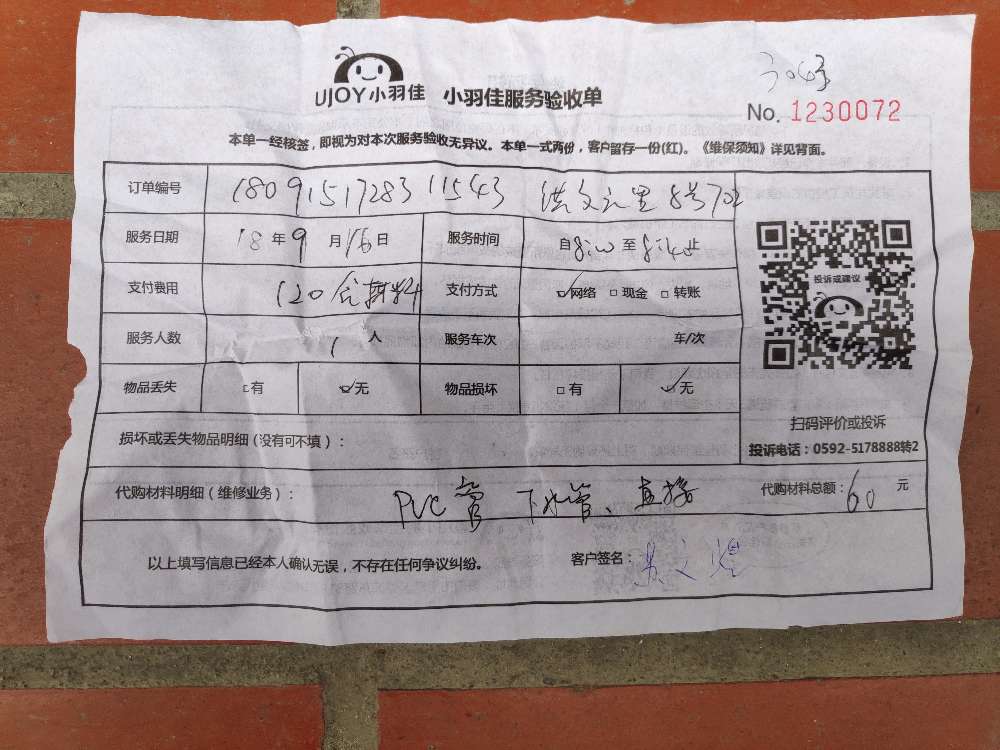 UJOY小羽佳 小羽佳服务验收单
No. 1230072
本单一经核签，即视为对本次服务验收无异议。本单一式两份，客户留存一份(红)。《维保须知》详见背面。
订单编号 180915172831 1543 洪文六里8号702
服务日期 18年9月16日 服务时间 自8:00至8:40止
支付费用 120含材料 支付方式 ☑网络 □现金 □转账
服务人数 1人 服务车次 车/次
物品丢失 □有 ☑无 物品损坏 □有 ☑无
投诉或建议
扫码评价或投诉
投诉电话：0592-5178888转2
损坏或丢失物品明细(没有可不填)：
代购材料明细(维修业务)： PVC管 下水管、直接 代购材料总额：60元
以上填写信息已经本人确认无误，不存在任何争议纠纷。 客户签名：